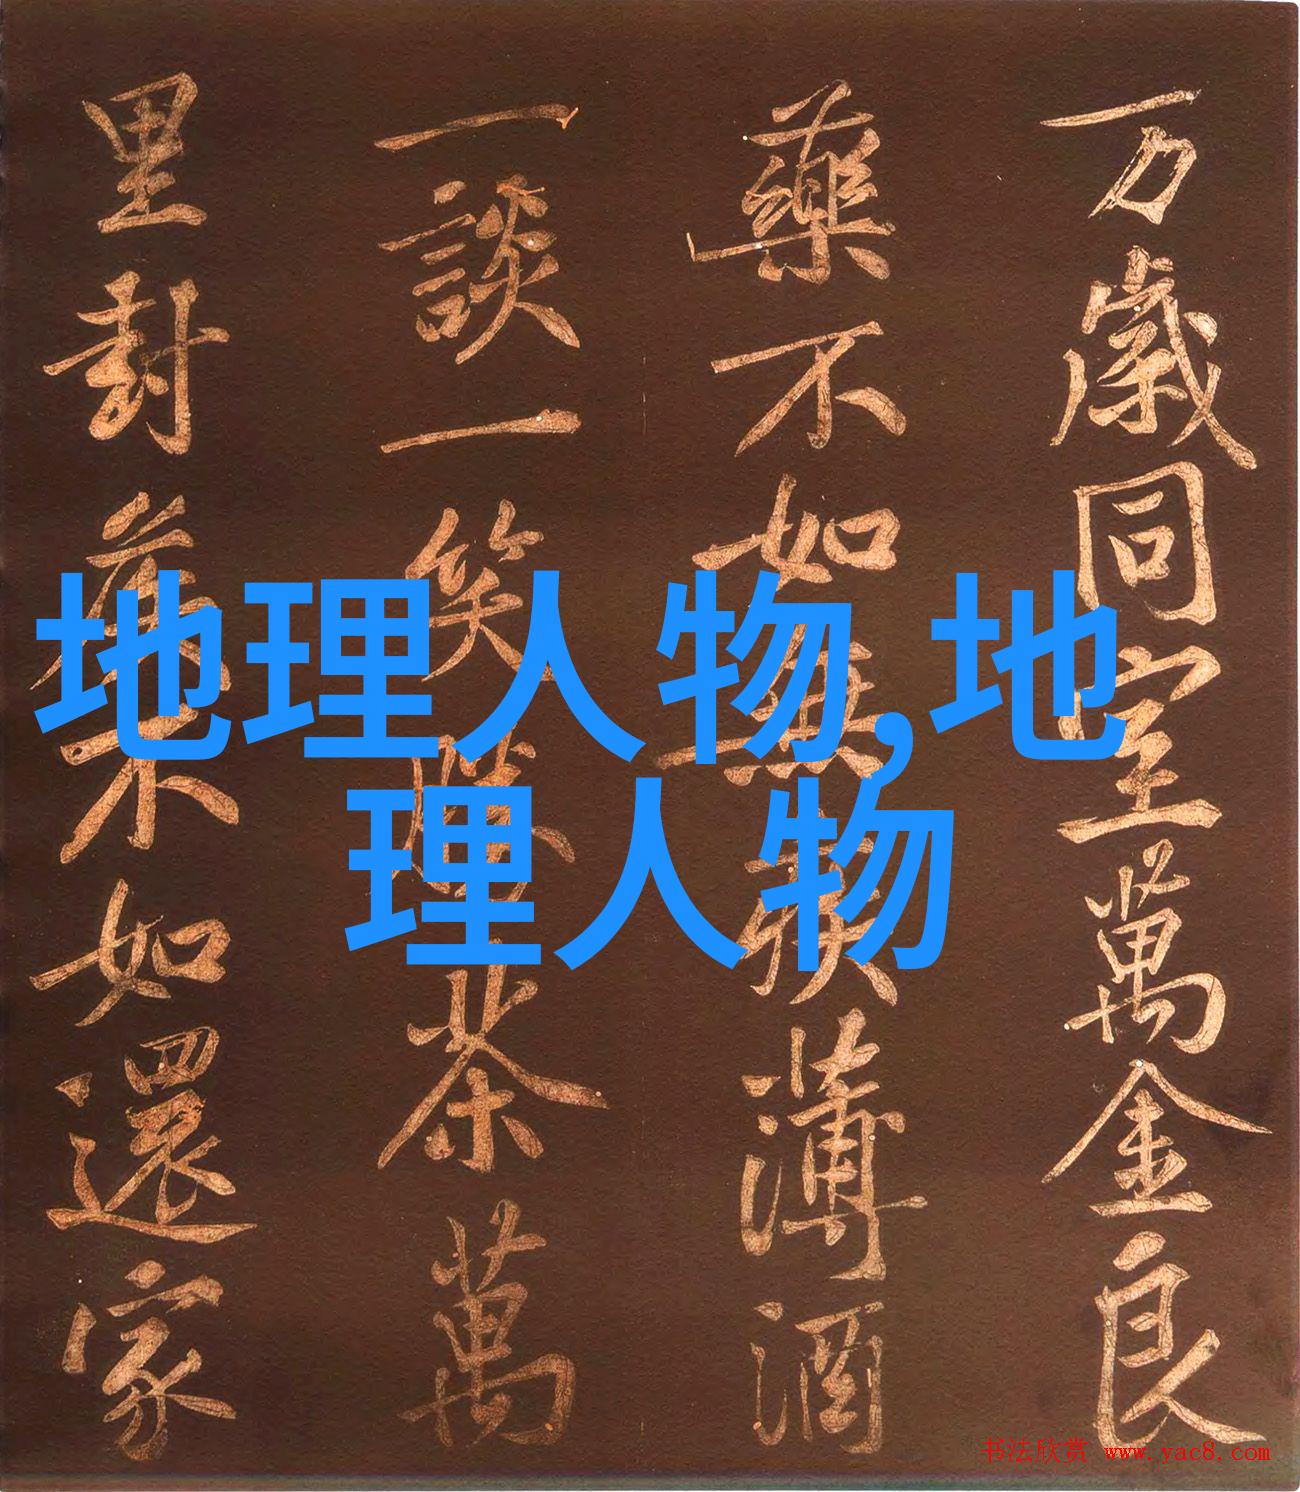 万歲同室萬金良
藥不如無疾薄酒
一談一笑勝茶萬
里封矦不如還家
地理人物,地
理人物
书法欣赏 www.yac8.com